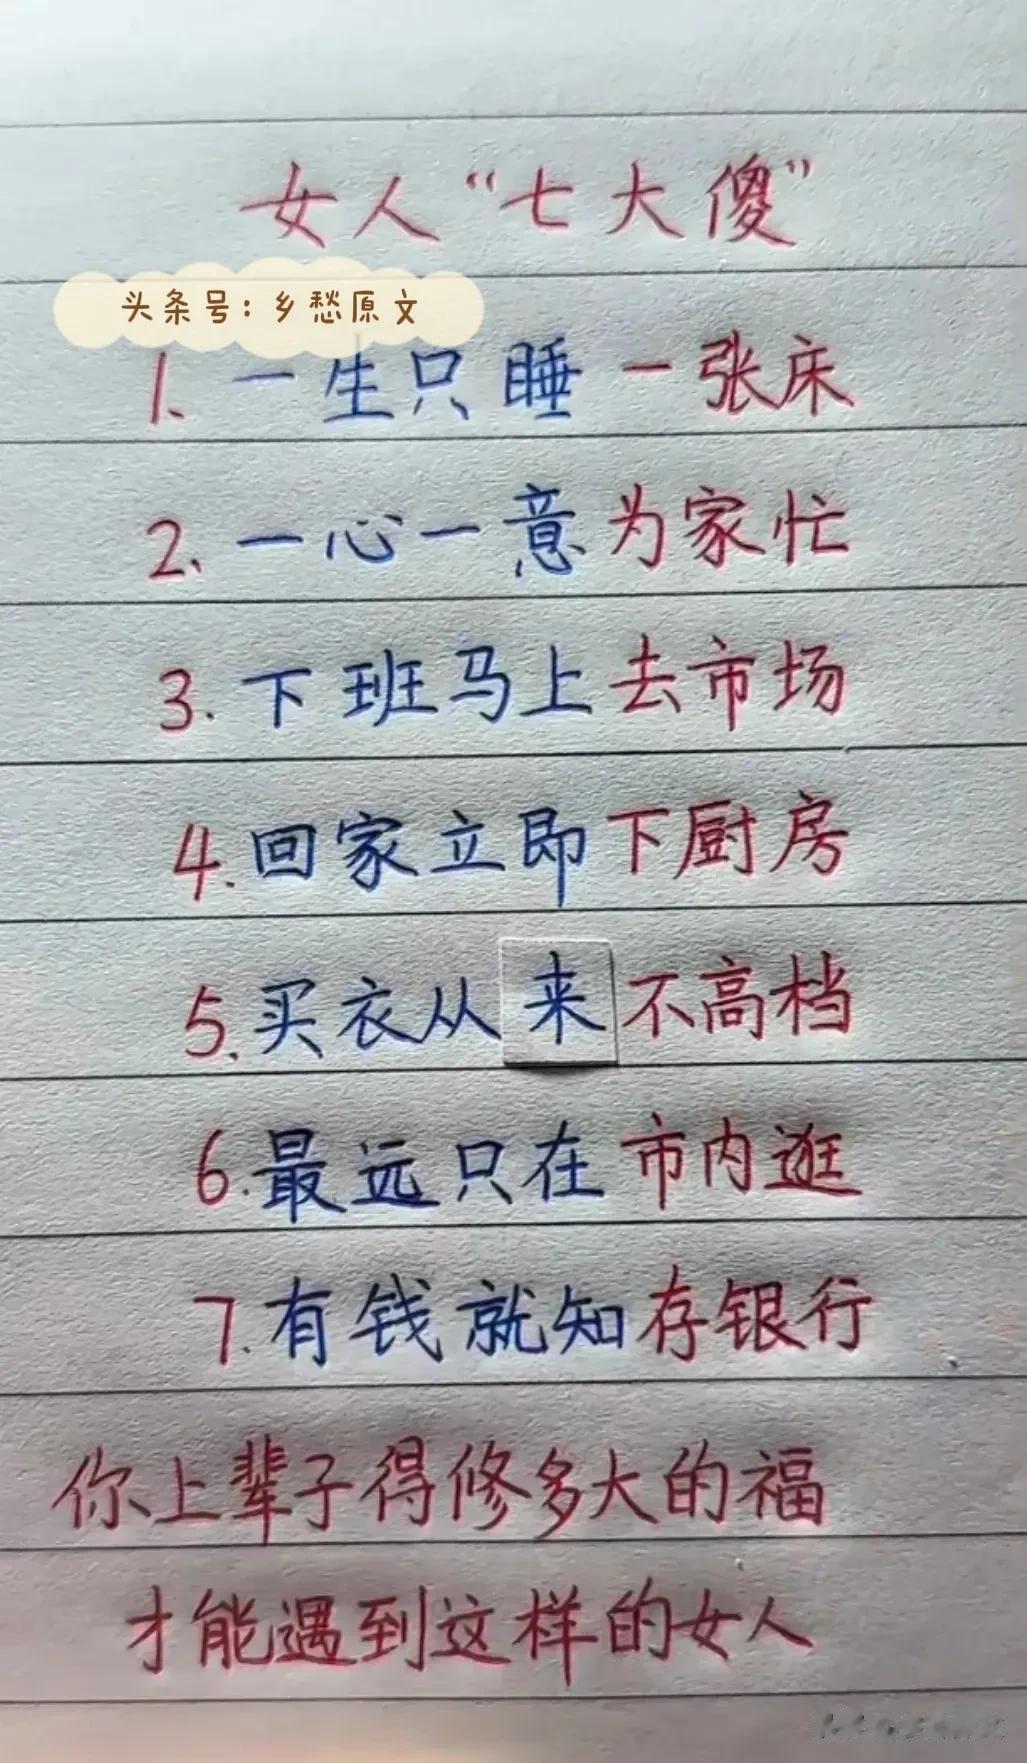 女人“七大傻”
头条号：乡愁原文
1、一生只睡一张床
2、一心一意为家忙
3.下班马上去市场
4.回家立即下厨房
5.买衣从来不高档
6.最远只在市内逛
7.有钱就知存银行
你上辈子得修多大的福
才能遇到这样的女人